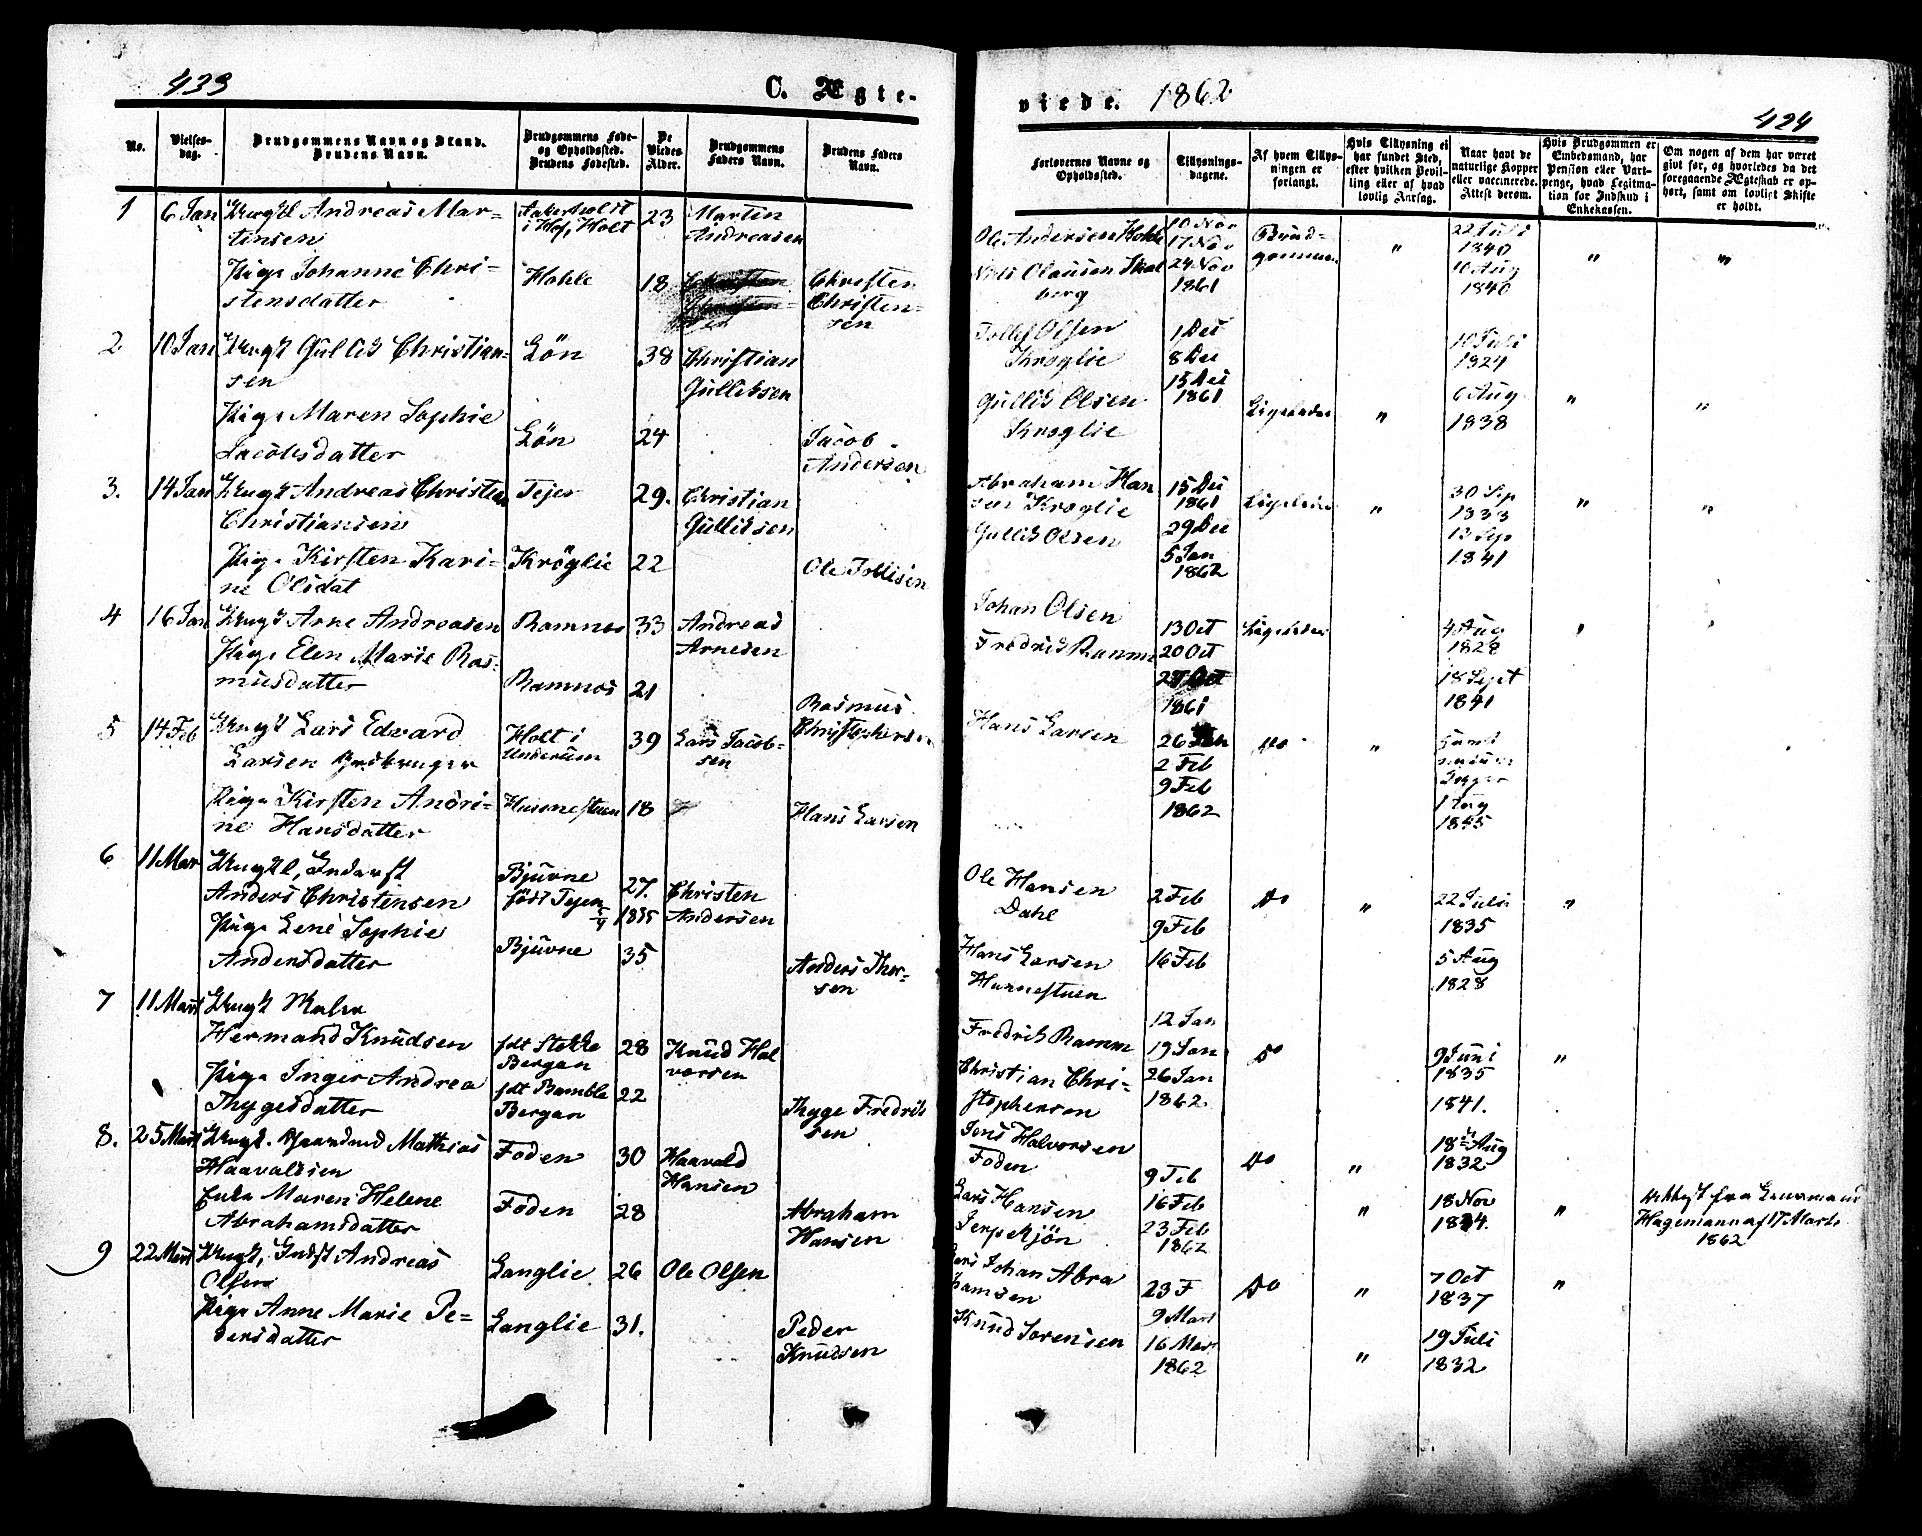 433
C. Ægte-
No.
Vielses-
dag.
Brudgommens Navn og Stand.
Brudens Navn.
Brudgommens Føde-
og Opholdssted.
Brudens Fødested.
De
Viedes
Alder.
Brudgommens
Faders Navn.
Brudens Faders
Navn.
1 6 Jan Ungkl Andreas Mar-
tinsen
i Hof, Holt 23 Marten
Andreasen
Pige Johanne Chri-
stensdatter
Hohle 18 Christen
Christen-
sen
2 10 Jan Ungk Gullik Christian-
sen
Løn 38 Christian
Gulliksen
Pige Maren Sophie
Jacobsdatter
Løn 24 Jacob
Andersen
3. 14 Jan Ungk Andreas Christian
Christiansen
Tejer 29. Christian
Gulliksen
Pige Kirsten Kari-
ne Olsdat
Krøglie 22 Ole Tollesen
4 16 Jan Ungk Arne Andreasen
Ramnes 33 Andreas
Arnesen
Pige Elen Marie Ras-
musdatter
Ramnes 21 Rasmus
Christophersen
5 14 Feb Ungk Lars Edvard
Larsen
Holt i
Underum 39 Lars Jacob-
sen
Pige Kirsten Andri-
ne Hansdatter
18 Hans Larsen
6 11 Mar Ungkl, Inderst
Anders Christensen
Bjuvne
født Tejen 27. Christen
1835 Andersen
Pige Lene Sophie
Andersdatter
Bjuvne 35 Anders Thor-
sen
7 11 Mars Ungk
Hermand Knudsen
fdt Stokke
Bergan 28 Knud Hal
vorsen
Pige Inger Andrea
Thygesdatter
fdt Bamble
Bergan 22 Thyge Fredrik
sen
8. 25 Mars Ungk. Gaardmd Mathias
Haavaldsen
Foden 30 Haavald
Hansen
Enke Maren Helene
Abrahamsdatter
Foden 28 Abraham
Hansen
9 22 Mars Ungk, Indst Andreas
Olsen
Langlie 26 Ole Olsen
Pige Anne Marie Pe-
dersdatter
Langlie 31. Peder
Knudsen
viede. 1862
424
Forlovernes Navne og
Opholdssted.
Tillysnings-
dagene.
Af hvem Tillys-
ningen er
forlangt.
Hvis Tillysning ei
har fundet Sted,
efter hvilken Bevil-
ling eller af hvad
lovlig Aarsag.
Naar havt de
naturlige Kopper
eller vaccinerede.
Attest derom.
Hvis Brudgommen er
Embedsmand, har
Pension eller Vart-
penge, hvad Legitma-
tion for Indskud i
Enkekassen.
Om nogen af dem har været
givt før, og hvorledes da det
foregaaende Ægteskab er op-
hørt, samt om lovligt Skifte
er holdt.
Ole Andersen Hohle
Nils Olausen Skal
berg
10 Nov
17 Nov
24 Nov
1861
Brud-
gommen
"
22 Juli
1840
10 Aug
1840
" "
Tollef Olsen
Krøglie
Gullik Olsen
Krøglie
1 Dec
8 Dec
15 Dec
1861
Ligeledes
"
10 Juli
1824
6 Aug
1838
" "
Abraham Han
sen Krøglie
Gullik Olsen
15 Dec
1861
29 Dec
5 Jan
1862
Ligeledes
"
30 Sep
1833
13 Sep
1841
" "
Johan Olsen
Fredrik Ramm
13 Oct
20 Oct
27 Oct
1861
Ligeledes
4 Aug
1828
18 Sept
1841
" "
Hans Larsen
26 Jan
2 Feb
9 Feb
1862
Do
"
1 Aug
1845
Ole Hansen
Dahl
Hans Larsen
Hunnestuen
2 Feb
9 Feb
16 Feb
Do
"
22 Juli
1835
5 Aug
1828
"
Fredrik Ramm
Christian Chri-
stophersen
12 Jan
19 Jan
26 Jan
1862
Do
9 Juni
1835
1841.
"
Jens Halvorsen
Foden
Lars Hansen
9 Feb
16 Feb
23 Feb
1862
Do
" "
18 Aug
1832
18 Nov
1834.
"
Hagemann af 17 Marts
1862
Lars Johan Abra
hamsen
Knud Sorensen
23 F
9 Mars
16 Mars
1862
Do
" "
7 Oct
1837
19 Juli
1832
"